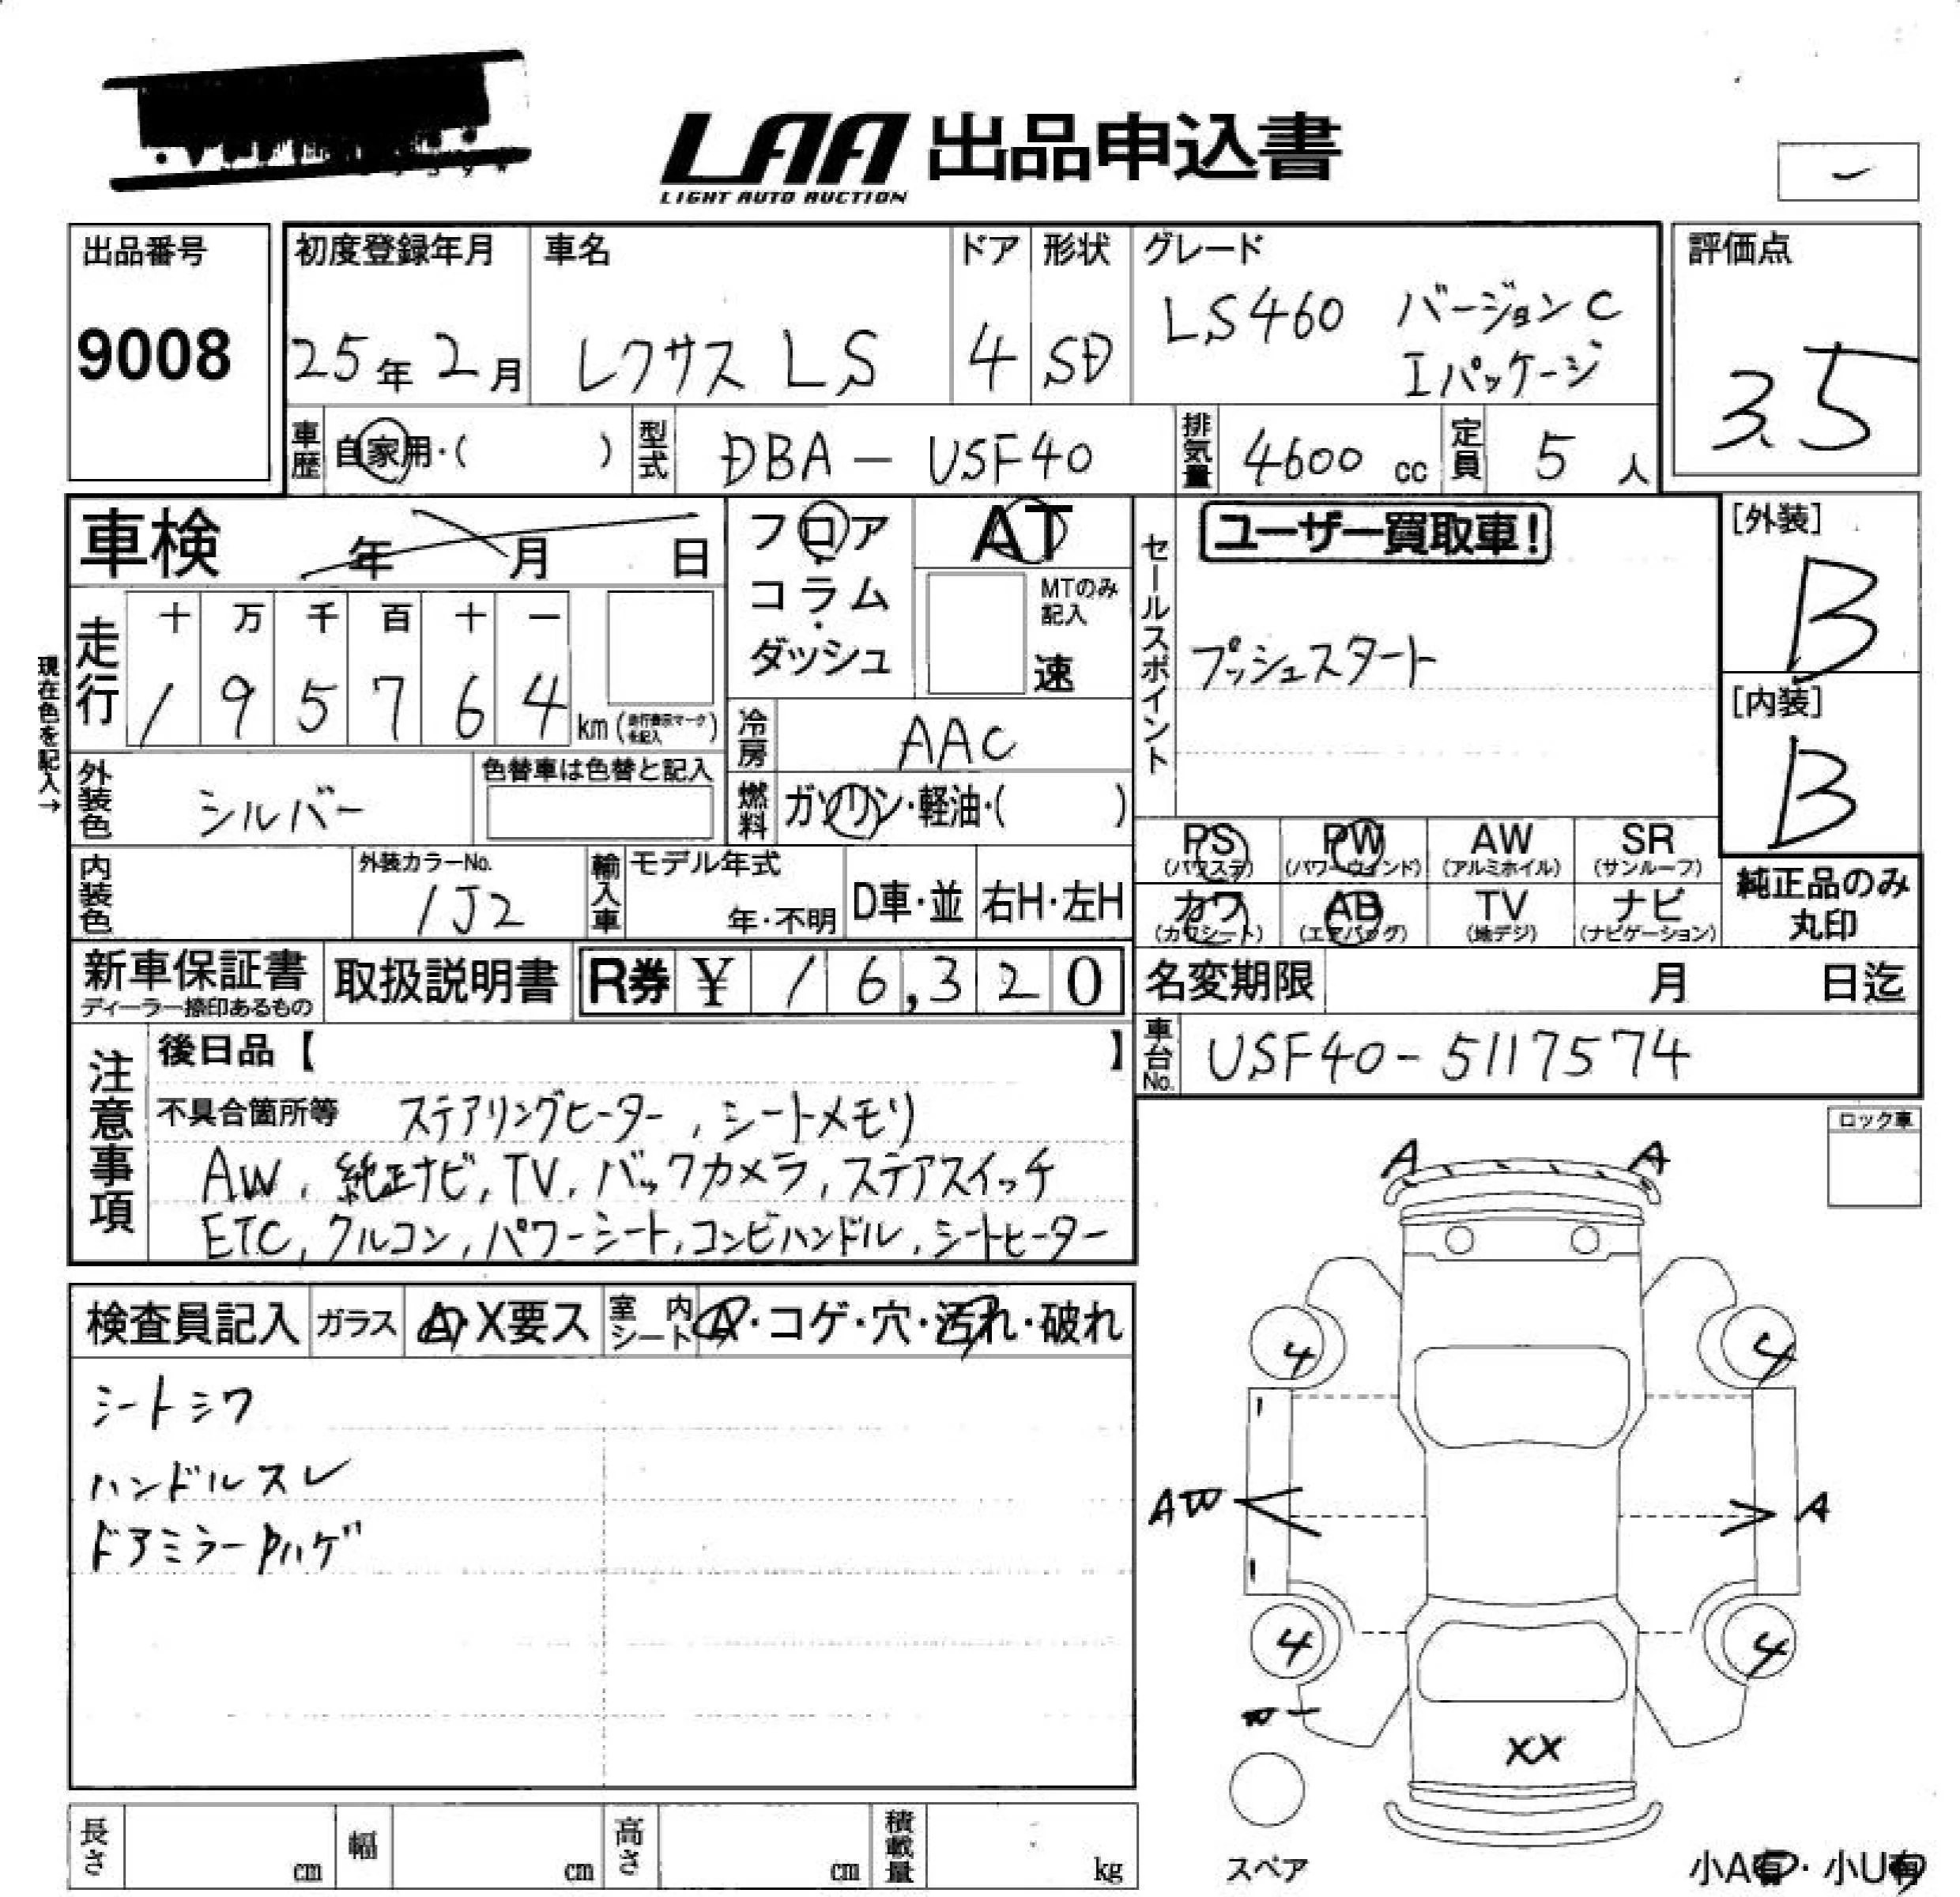 LAA 出品申込書
LIGHT AUTO AUCTION
出品番号
9008
初度登録年月
25年 2月
車名
レクサス LS
ドア
4
形状
SD
グレード
LS460 バージョンC
Iパッケージ
評価点
3.5
車歴
自家用・( )
型式
DBA - USF40
排気量
4600 cc
定員
5 人
車検 年 月 日
フロア・
コラム・
ダッシュ
AT
MTのみ
記入
速
セールスポイント
ユーザー買取車!
プッシュスタート
[外装]
B
[内装]
B
現在色を記入→
走行
十 万 千 百 十 一
1 9 5 7 6 4 km (走行表示マークを記入)
冷房
AAC
外装色
シルバー
色替車は色替と記入
燃料
ガソリン・軽油・( )
PS
(パワステ)
PW
(パワーウィンド)
AW
(アルミホイル)
SR
(サンルーフ)
カワ
(カワシート)
AB
(エアバッグ)
TV
(地デジ)
ナビ
(ナビゲーション)
純正品のみ
丸印
内装色
外装カラーNo.
1J2
輸入車
モデル年式
年・不明
D車・並
右H・左H
新車保証書
ディーラー捺印あるもの
取扱説明書
R券 ¥ 16,320
名変期限 月 日迄
車台No.
USF40-5117574
注意事項
後日品【 】
不具合箇所等 ステアリングヒーター, シートメモリ
AW, 純正ナビ, TV, バックカメラ, ステアスイッチ
ETC, クルコン, パワーシート, コンビハンドル, シートヒーター
ロック車
検査員記入
ガラス
A・X要ス
室内シート
A・コゲ・穴・汚れ・破れ
シートシワ
ハンドルスレ
ドアミラーPハゲ
A A
4 4
AW A
4 4
W
XX
スペア
小A有・小U有
長さ cm
幅 cm
高さ cm
積載量 kg